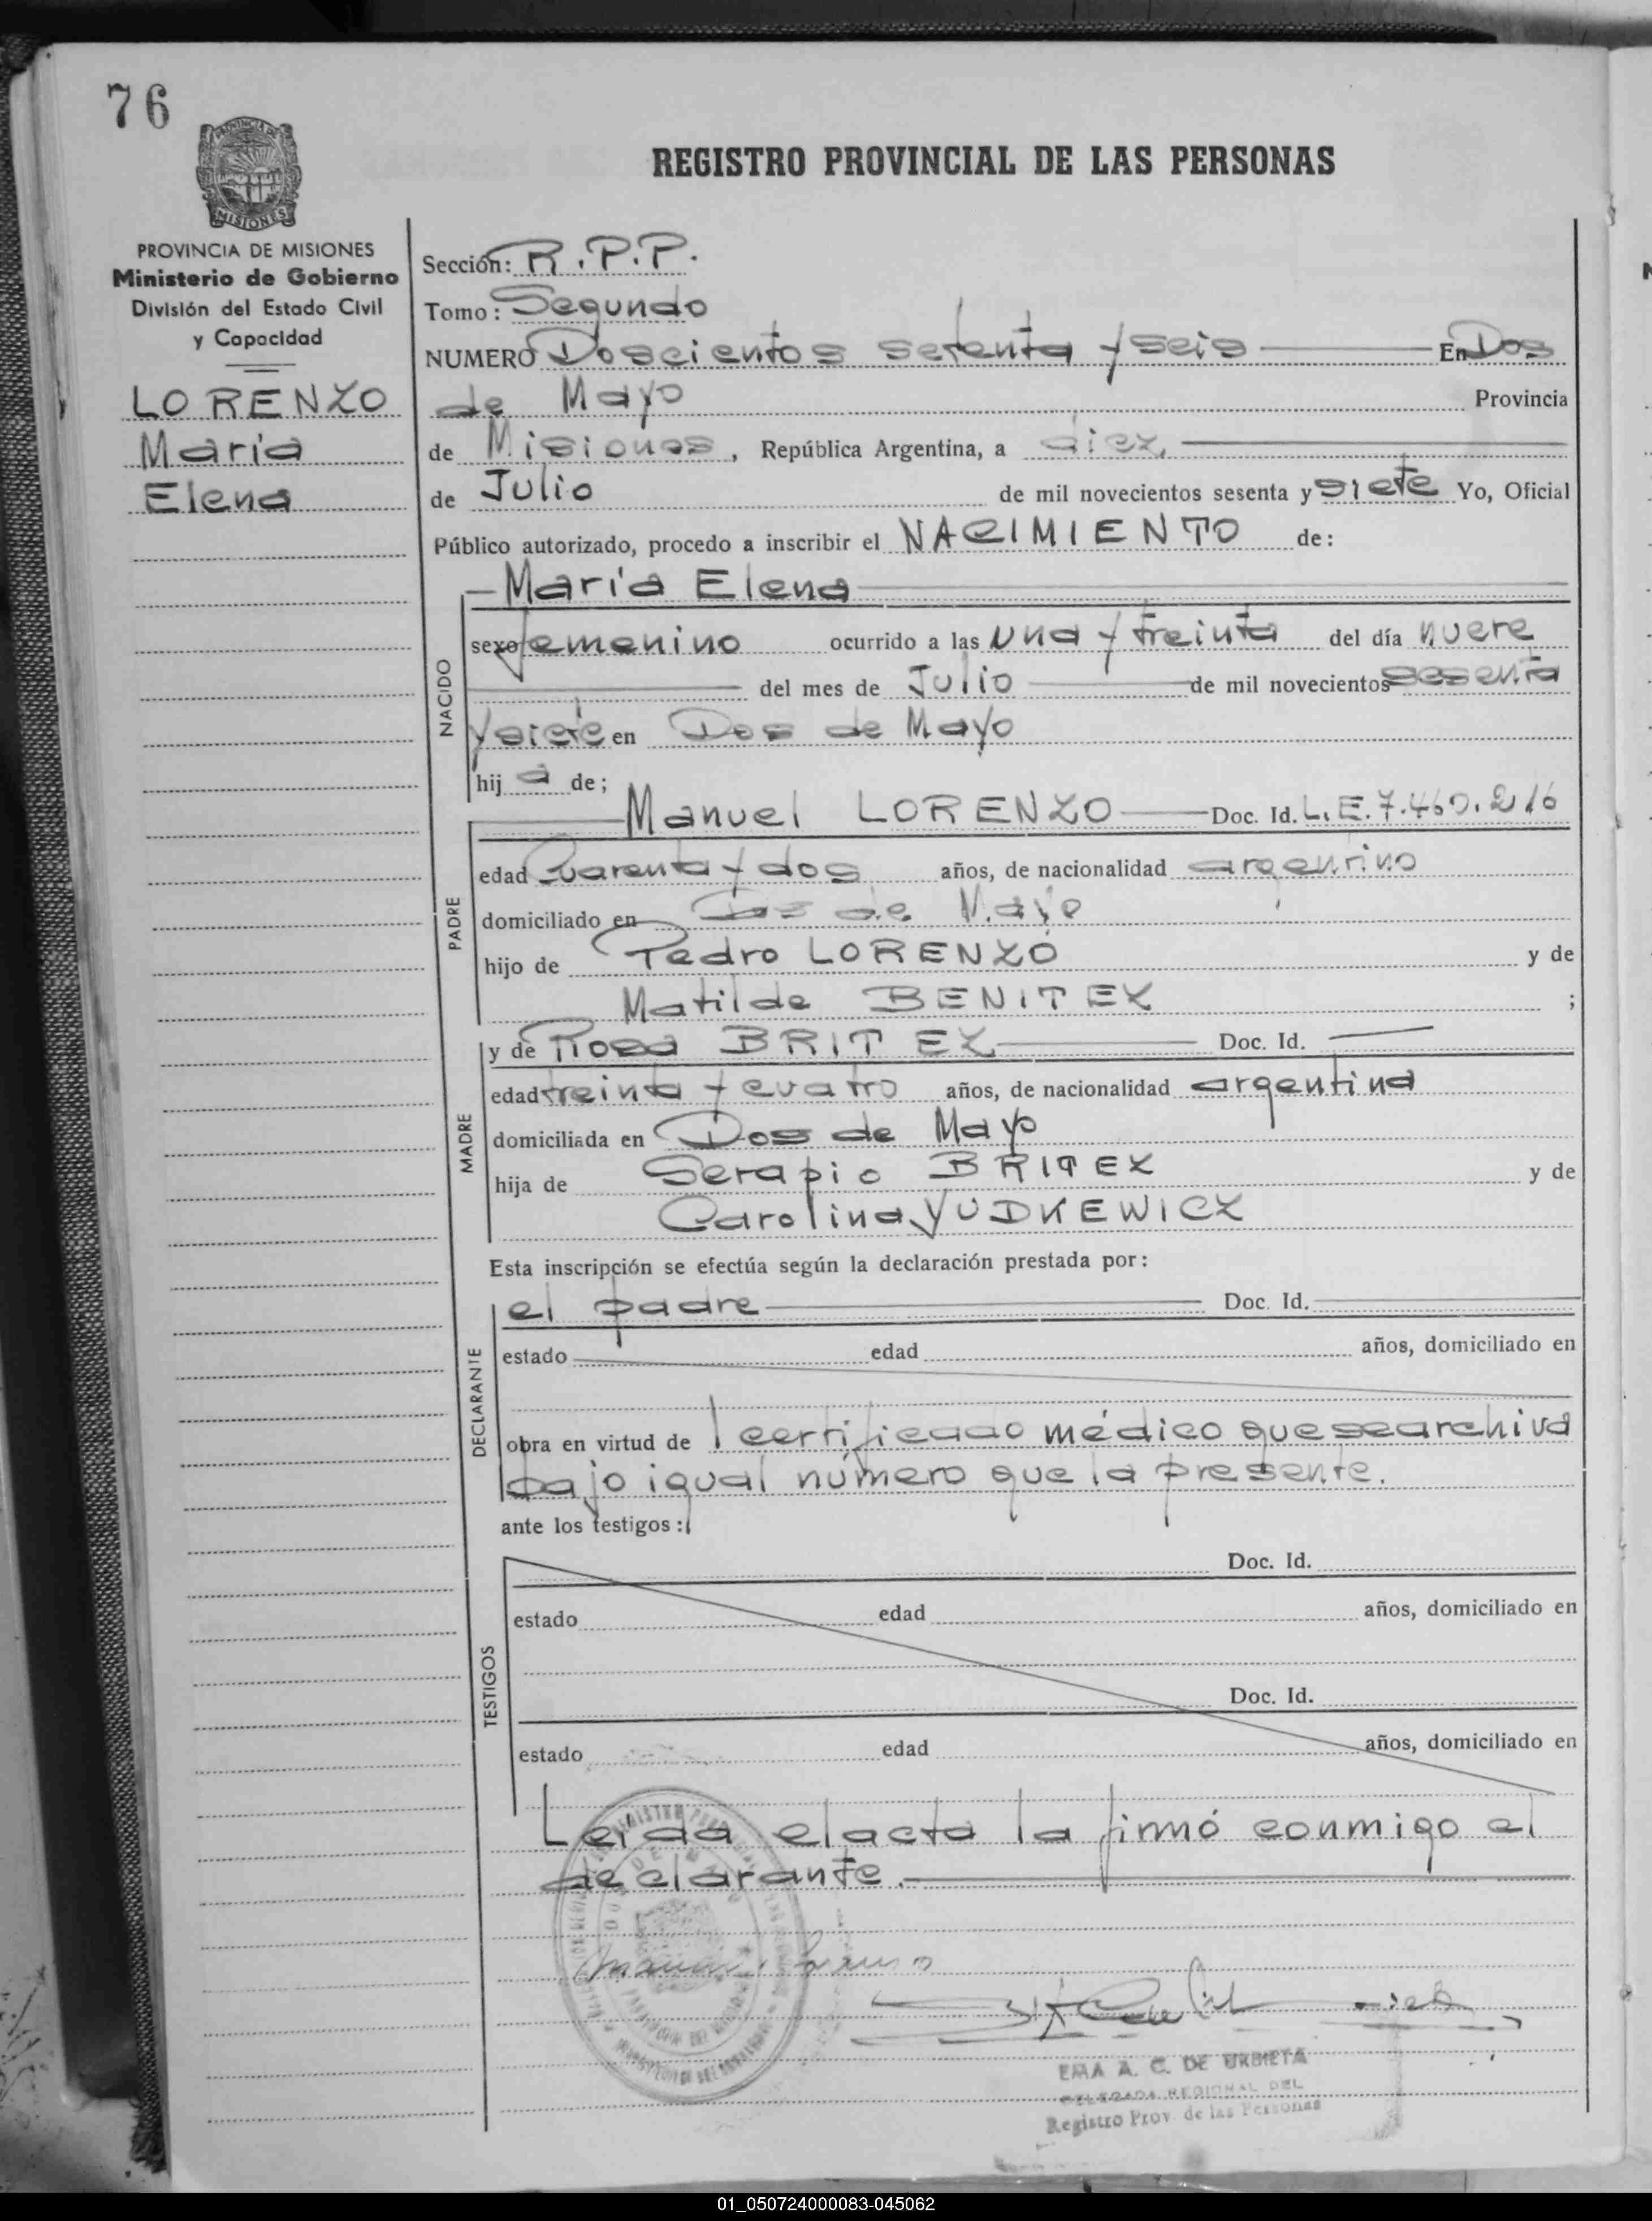 76
PROVINCIA DE
MISIONES
REGISTRO PROVINCIAL DE LAS PERSONAS
PROVINCIA DE MISIONES
Ministerio de Gobierno
División del Estado Civil
y Capacidad
LORENZO
María
Elena
Sección: R.P.P.
Tomo: Segundo
NUMERO Doscientos setenta y seis En Dos
de Mayo Provincia
de Misiones, República Argentina, a diez,
de Julio de mil novecientos sesenta y siete Yo, Oficial
Público autorizado, procedo a inscribir el NACIMIENTO de:
María Elena
NACIDO
sexo femenino ocurrido a las una y treinta del día nueve
del mes de Julio de mil novecientos sesenta
y siete en Dos de Mayo
hija de;
Manuel LORENZO Doc. Id. L.E. 7.460.216
PADRE
edad Cuarenta y dos años, de nacionalidad argentino
domiciliado en Dos de Mayo
hijo de Pedro LORENZO y de
Matilde BENITEZ ;
y de Rosa BRITEZ Doc. Id.
MADRE
edad treinta y cuatro años, de nacionalidad argentina
domiciliada en Dos de Mayo
hija de Serapio BRITEZ y de
Carolina YUDKEWICZ
Esta inscripción se efectúa según la declaración prestada por:
el padre Doc. Id.
DECLARANTE
estado edad años, domiciliado en
obra en virtud de certificado médico que se archiva
bajo igual número que la presente.
ante los testigos:
Doc. Id.
TESTIGOS
estado edad años, domiciliado en
Doc. Id.
estado edad años, domiciliado en
Leída el acta la firmó conmigo el
declarante.
EMA A. C. DE URBIETA
DELEGADA REGIONAL DEL
Registro Prov. de las Personas
01_050724000083-045062